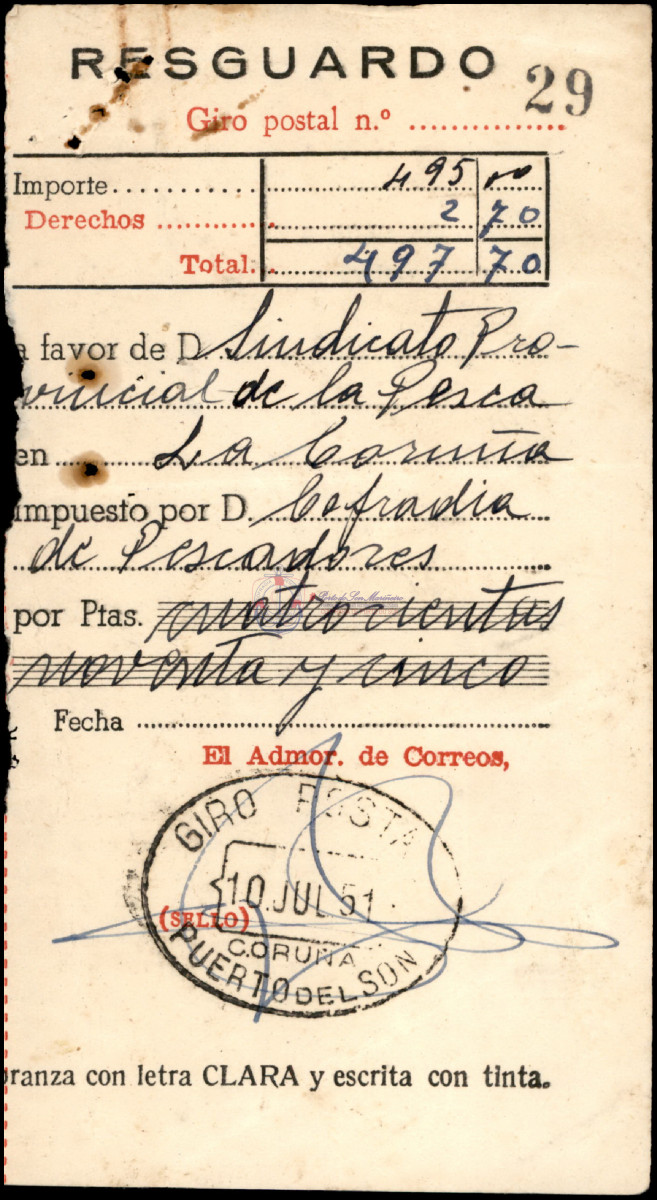 RESGUARDO
29
Giro postal n.º
Importe 495 00
Derechos 2 70
Total. 497 70
a favor de D. Sindicato Pro-
vincial de la Pesca
en La Coruña
impuesto por D. Cofradia
de Pescadores
por Ptas. cuatrocientas
noventa y cinco
Fecha
El Admor. de Correos,
GIRO POSTA
10.JUL 51
(SELLO)
CORUÑA
PUERTO DEL SON
branza con letra CLARA y escrita con tinta.